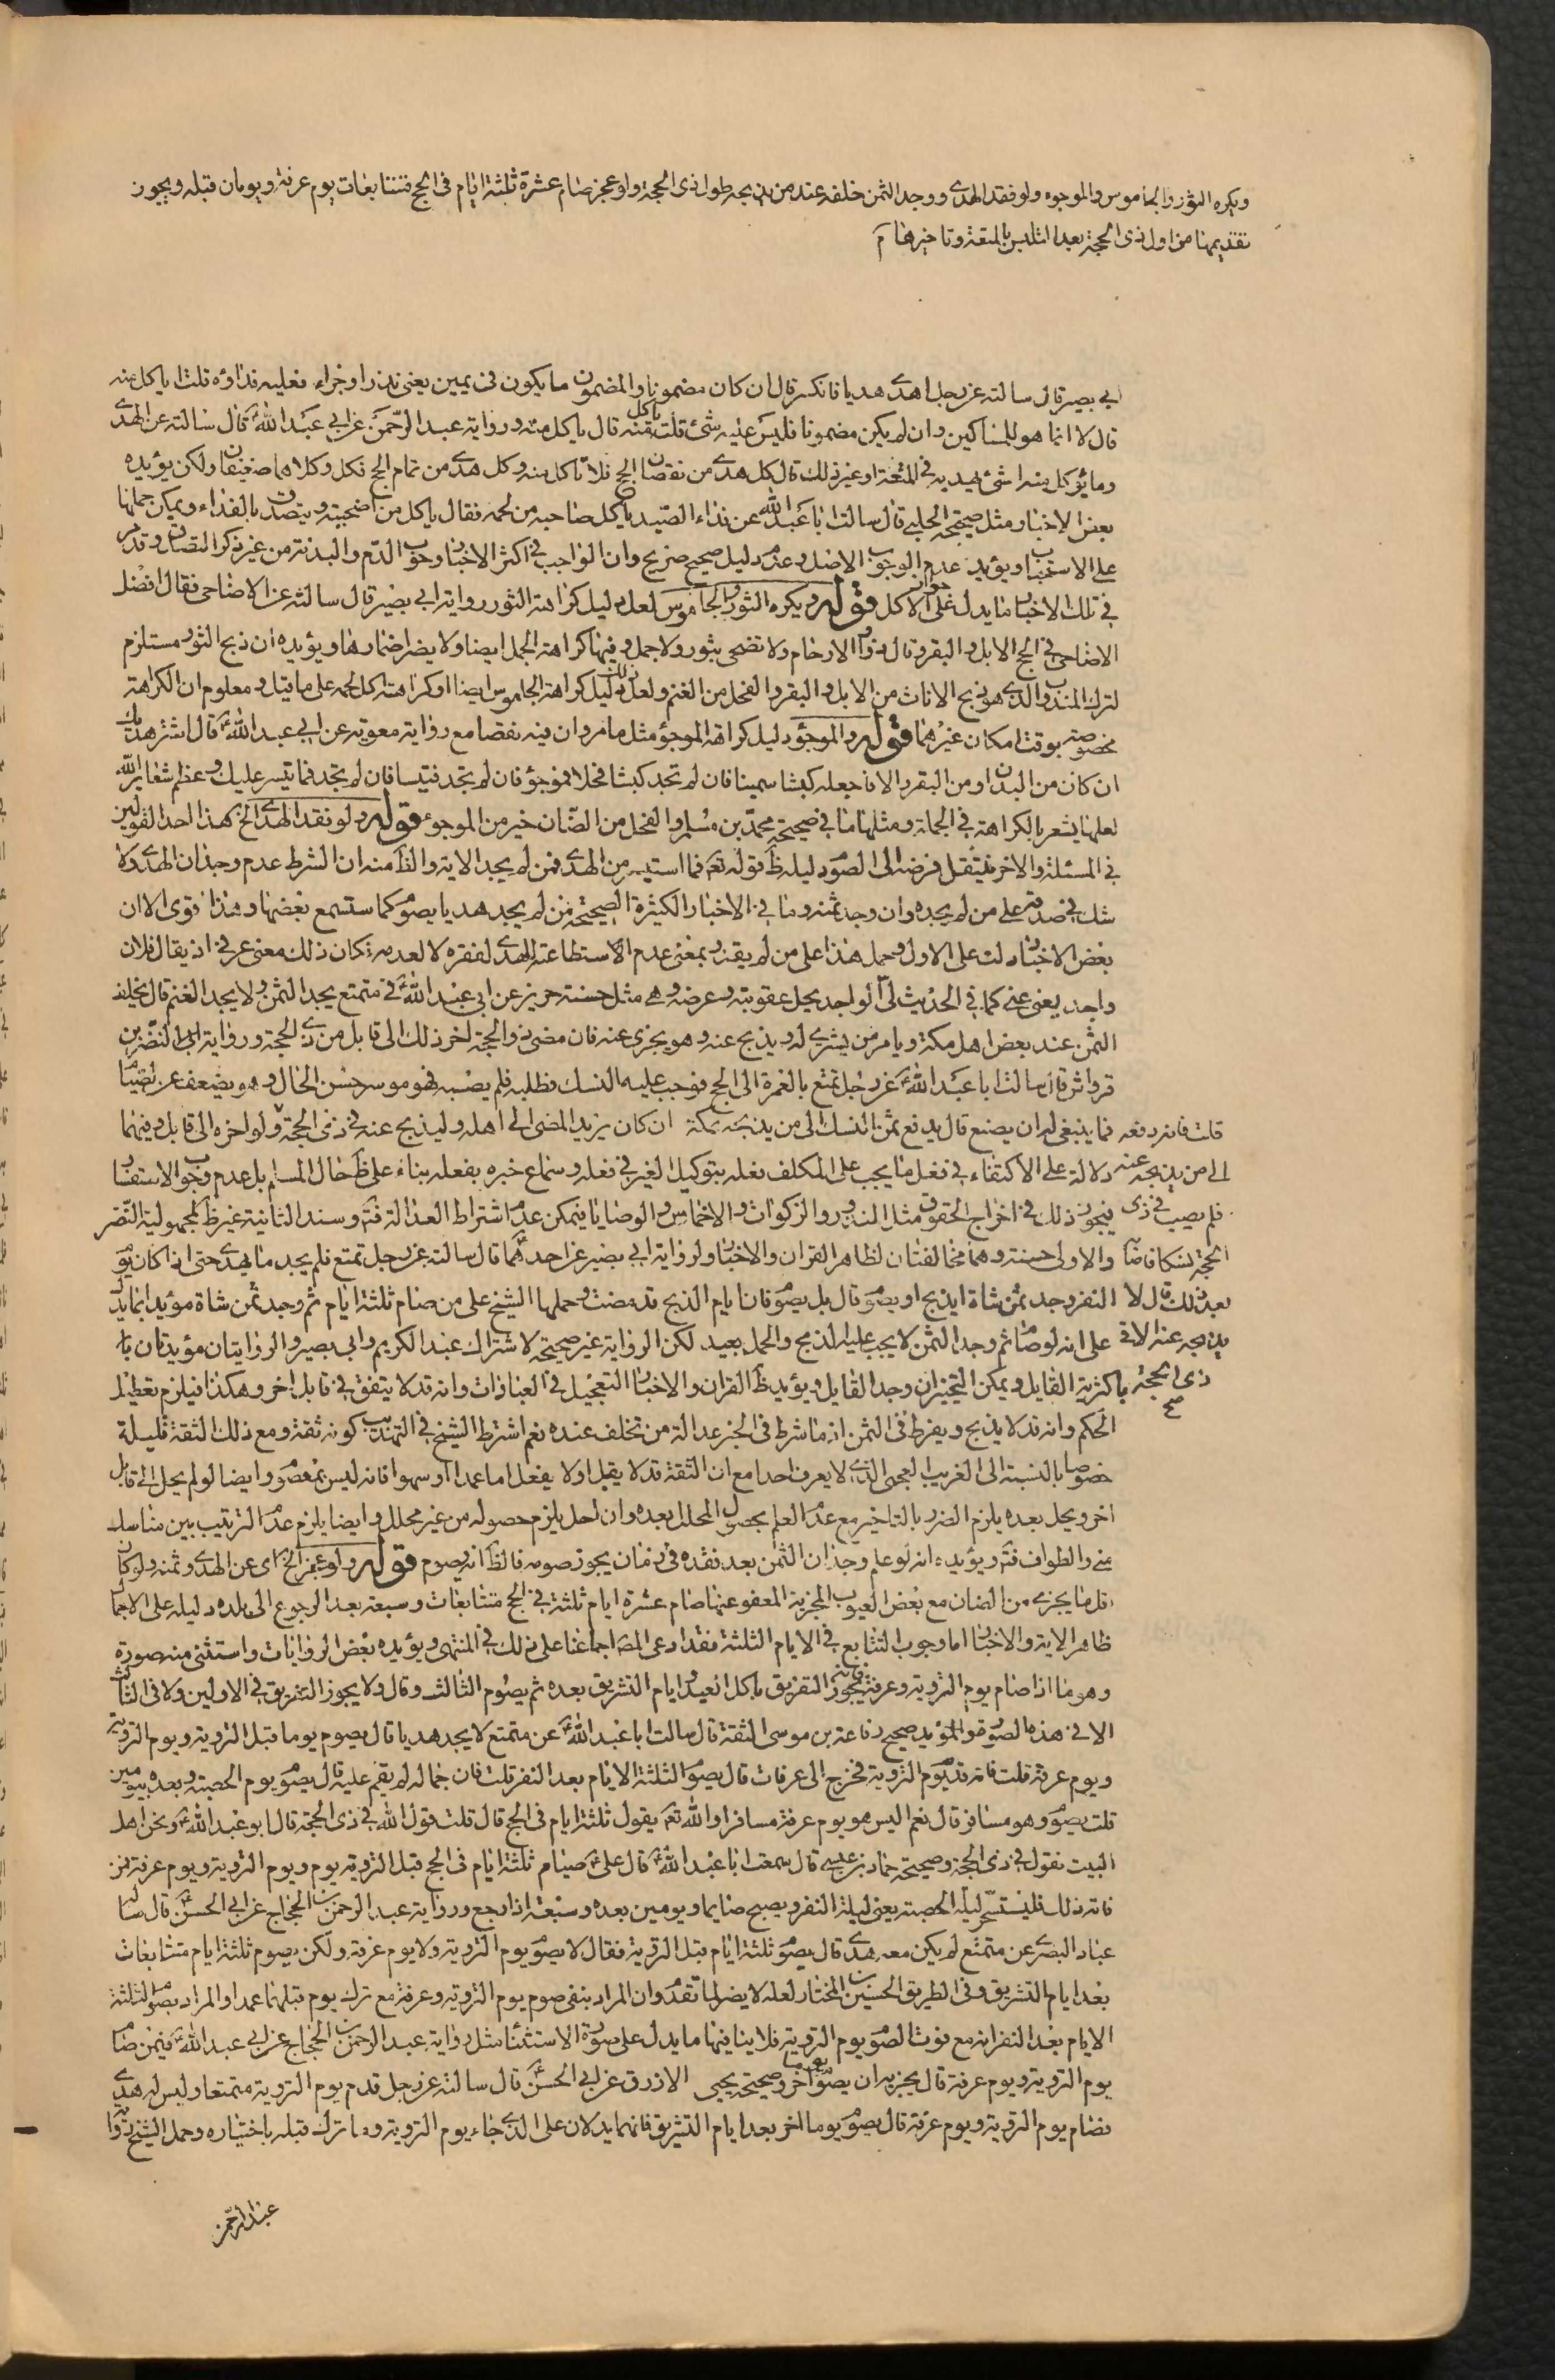 ويكره الثور والجاموس والموجوء ولو فقد الهدى ووجد الثمن خلفه عند من يذبحه طول ذى الحجة ولو عجز صام عشرة ثلثة ايام فى الحج متتابعات يوم عرفة ويومان قبله ويجوز
تقديمها من اول ذى الحجة بعد التلبس بالمتعة وتاخيرها
ابى بصير قال سالته عن رجل اهدى هديا فانكسر قال ان كان مضمونا والمضمون ما يكون فى يمين يعنى نذرا وجزاء فعليه فداؤه قلت ا ياكل منه
قال لا انما هو للمساكين وان لم يكن مضمونا فليس عليه شئ قلت ياكل منه قال ياكل منه ورواية عبد الرحمن عن ابى عبد الله قال سالته عن الهدى
وما يؤكل منه اشئ يهديه فى المتعة او غير ذلك قال كل هدى من نقصان الحج فلا تاكل منه وكل هدى من تمام الحج فكل وكلاهما ضعيفان ولكن يؤيده
بعض الاخبار مثل صحيحة الحلبى قال سالت ابا عبد الله عن فداء الصيد ياكل صاحبه من لحمه فقال ياكل من اضحيته ويتصدق بالفداء ويمكن حملها
على الاستحباب ويؤيد عدم الوجوب الاصل وعدم دليل صحيح صريح وان الواجب فى اكثر الاخبار وجوب الدم والبدنة من غير ذكر النقصان وقد مر
فى تلك الاخبار ما يدل على جواز الاكل قوله ويكره الثور والجاموس لعل دليل كراهة الثور رواية ابى بصير قال سالته عن الاضاحى فقال افضل
الاضاحى فى الحج الابل والبقر وقال ذوا الارحام ولا تضحى بثور ولا جمل وفيها كراهة الجمل ايضا ولا يضر اضمارها ويؤيده ان ذبح الثور مستلزم
لترك المندوب الذى هو ذبح الاناث من الابل والبقر والفحل من الغنم ولعل ذلك دليل كراهة الجاموس ايضا او كراهة اكل لحمه على ما يقال ومعلوم ان الكراهة
مخصوصة بوقت امكان غيرهما قوله والموجوء دليل كراهة الموجوء مثل ما مر وان فيه نقصا مع رواية معوية عن ابى عبد الله قال اشتر هديك
ان كان من البدن او من البقر والا فاجعله كبشا سمينا فان لم تجد كبشا فحلا فموجوء فان لم تجد فتيسا فان لم تجد فما تيسر عليك وعظم شعاير الله
لعلها يشعر بالكراهة فى الجملة ومثلها ما فى صحيحة محمد بن مسلم والفحل من الضان خير من الموجوء قوله ولو فقد الهدى الخ هذا احد القولين
فى المسئلة والاخر ينتقل فرضه الى الصوم ودليله ظ قوله تعه فما استيسر من الهدى فمن لم يجد الاية والظ منه ان الشرط عدم وجدان الهدى ولا
شك فى صدقه على من لم يجده وان وجد ثمنه وما فى الاخبار الكثيرة الصحيحة من لم يجد هديا يصوم كما ستسمع بعضها وهذا قوى الا ان
بعض الاخبار دلت على الاول وحمل هذا على من لم يقدر بمعنى عدم الاستطاعة للهدى لفقره لا لعدمه فكان ذلك معنى عرفى اذ يقال فلان
واجد يعنى غنى كما فى الحديث لىّ الواجد يحل عقوبته وعرضه وهى مثل حسنة حريز عن ابى عبد الله فى متمتع يجد الثمن ولا يجد الغنم قال يخلف
الثمن عند بعض اهل مكة ويامر من يشترى له ويذبح عنه وهو يجزى عنه فان مضى ذو الحجة اخر ذلك الى قابل من ذى الحجة ورواية النضر بن
قرواش قال سالت ابا عبد الله عن رجل تمتع بالعمرة الى الحج فوجب عليه النسك فطلبه فلم يصبه فهو موسر حسن الحال وهو يضعف عن الصيام
فما ينبغى له ان يصنع قال يدفع ثمن النسك الى من يذبحه بمكة ان كان يريد المضى الى اهله وليذبح عنه فى ذى الحجة ولو اخره الى قابل وفيهما
قلت فانه دفعه
الى من يذبحه عنه
فلم يصب فى ذى
الحجة نسكا فاصابه
بعد ذلك قال لا
يذبحه عنه الا فى
ذى الحجة
صح
دلالة على الاكتفاء فى فعل ما يجب على المكلف فعله بتوكيل الغير فى فعله وسماع خبره بفعله بناء على ظ حال المسلم بل عدم وجوب الاستفسار
فيجوز ذلك فى اخراج الحقوق مثل النذور والزكوات والاخماس والوصايا فيمكن عدم اشتراط العدالة فت وسند الثانية غير ظ لمجهولية النضر
والاولى حسنة وهما مخالفتان لظاهر القران والاخبار ولرواية ابى بصير عن احدهما قال سالته عن رجل تمتع فلم يجد ما يهدى حتى اذا كان يوم
النفر وجد ثمن شاة ايذبح او يصوم قال بل يصوم فان ايام الذبح قد مضت وحملها الشيخ على من صام ثلثة ايام ثم وجد ثمن شاة مؤيدا بما يدل
على انه لو صام ثم وجد الثمن لا يجب عليه الذبح والحمل بعيد لكن الرواية غير صحيحة لاشتراك عبد الكريم وابى بصير والروايتان مؤيدتان
باكثرية القايل ويمكن التخيير ان وجد القايل ويؤيد ظ القران والاخبار التعجيل فى العبادات وانه قد لا يتفق فى قابل اخر وهكذا فيلزم تعطيل
الحكم وانه قد لا يذبح ويفرط فى الثمن اذ ما شرط فى الخبر عدالة من تخلف عنده نعم اشترط الشيخ فى التهذيب كونه ثقة ومع ذلك الثقة قليلة
خصوصا بالنسبة الى الغريب العجمى الذى لا يعرف احدا مع ان الثقة قد لا يقبل او لا يفعل اما عمدا او سهوا فانه ليس بمعصوم وايضا لو لم يحل الى قابل
اخر ويحل بعده يلزم الضرر بالتاخير مع عدم العلم بحصول المحلل بعده وان احل يلزم حصوله من غير محلل وايضا يلزم عدم الترتيب بين مناسك
منى والطواف فت ويؤيده انه لو علم وجدان الثمن بعد فقده فى زمان يجوز صومه فالظ انه يصوم قوله ولو عجز الخ اى عن الهدى وثمنه ولو كان
اقل ما يجزى من الضان مع بعض العيوب المجزية المعفو عنها صام عشرة ايام ثلثة فى الحج متتابعات وسبعة بعد الرجوع الى بلده دليله على الاجمال
ظاهر الاية والاخبار اما وجوب التتابع فى الايام الثلثة فقد ادعى المص اجماعنا على ذلك فى المنتهى ويؤيده بعض الروايات واستثنى منه صورة
وهو ما اذا صام يوم التروية وعرفة فيجوز التفريق باكل العيد وايام التشريق بعده ثم يصوم الثالث وقال ولا يجوز التفريق فى الاولين ولا فى الثالث
الا فى هذه الصورة والمؤيد صحيح رفاعة بن موسى الثقة قال سالت ابا عبد الله عن متمتع لا يجد هديا قال يصوم يوما قبل التروية ويوم التروية
ويوم عرفة قلت فانه قدم يوم التروية فخرج الى عرفات قال يصوم الثلثة الايام بعد النفر قلت فان جماله لم يقم عليه قال يصوم يوم الحصبة وبعده بيومين
قلت يصوم وهو مسافر قال نعم اليس هو يوم عرفة مسافرا والله تعه يقول ثلثة ايام فى الحج قال قلت قول الله فى ذى الحجة قال ابو عبد الله ونحن اهل
البيت نقول فى ذى الحجة وصحيحة حماد بن عيسى قال سمعت ابا عبد الله قال على صيام ثلثة ايام فى الحج قبل التروية يوم ويوم التروية ويوم عرفة فمن
فاته ذلك فليتسحر ليلة الحصبة يعنى ليلة النفر ويصبح صايما ويومين بعده وسبعة اذا رجع ورواية عبد الرحمن بن الحجاج عن ابى الحسن قال ساله
عباد البصرى عن متمتع لم يكن معه هدى قال يصوم ثلثة ايام قبل التروية فقال لا يصوم يوم التروية ولا يوم عرفة ولكن يصوم ثلثة ايام متتابعات
بعد ايام التشريق وفى الطريق الحسين بن المختار لعله لا يضر لما تقدم وان المراد بنفى صوم يوم التروية وعرفة مع ترك يوم قبلهما عمدا والمراد بصوم الثلثة
الايام بعد النفر انه مع فوت الصوم يوم التروية فلا ينافيها ما يدل على صورة الاستثناء مثل رواية عبد الرحمن بن الحجاج عن ابى عبد الله فيمن صام
يوم التروية ويوم عرفة قال يجزيه ان يصوم يوما اخر وصحيحة يحيى الازرق عن ابى الحسن قال سالته عن رجل قدم يوم التروية متمتعا وليس له هدى
فصام يوم التروية ويوم عرفة قال يصوم يوما اخر بعد ايام التشريق فانهما يدلان على الذى جاء يوم التروية وما ترك قبله باختياره وحمل الشيخ رواية
عبد الرحمن